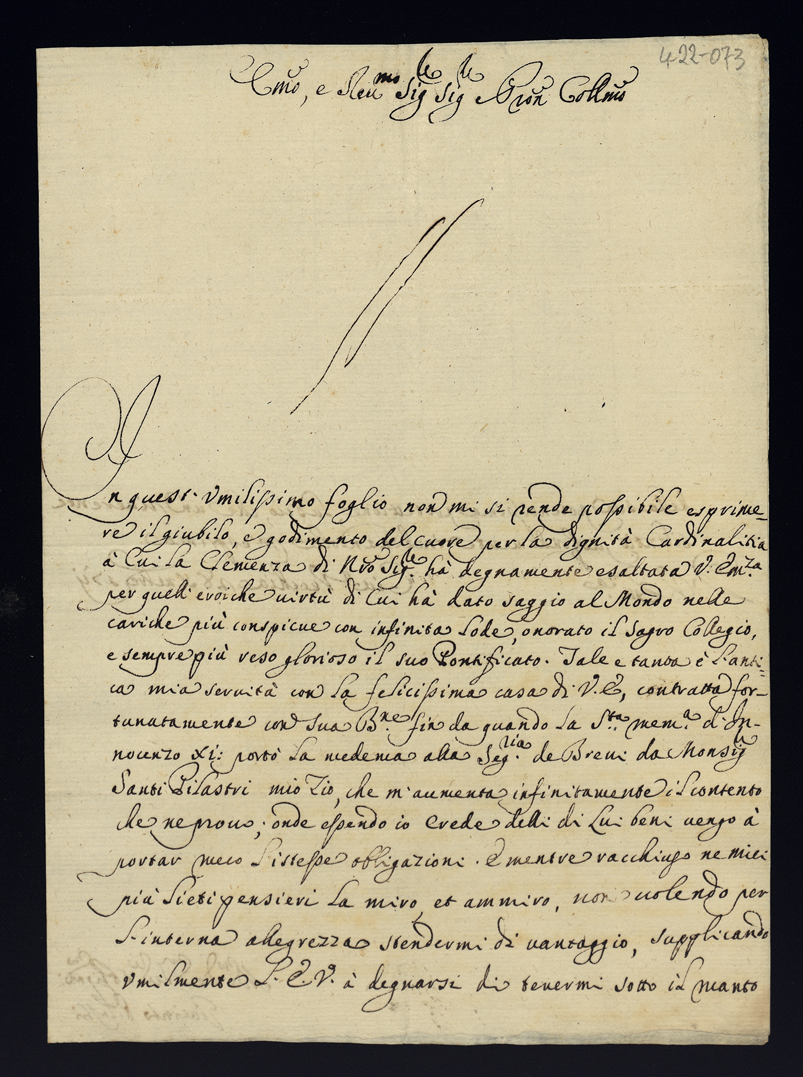 422-073
Emo, e Reumo Sigre Sigre Pron Collmo
In quest' vmilissimo foglio non mi si rende possibile esprime-
re il giubilo, e godimento del cuore per la dignità Cardinalitia
à Cui la Clemenza di Nro Sigre hà degnamente esaltata V. Emza
per quelli eroiche virtù di Cui hà dato saggio al Mondo nelle
cariche più conspicue con infinita Lode, onorato il Sagro Collegio,
e sempre più reso glorioso il suo Pontificato. Tale e tanta è l'anti=
ca mia seruità con la felicissima casa di V. E., contratta for-
tunatamente con Sua Bne fin da quando la Sta mema d'In-
nocenzo XI: portò la medema alla Segria de Breui da Monsigr
Santi Pilastri mio Zio, che m'aumenta infinitamente il contento
che ne prouo; onde essendo io Erede delli di Lui beni uengo à
portar meco l'istesse obligazioni. E mentre racchiuso ne miei
più lieti pensieri la miro, et ammiro, non uolendo per
l'interna allegrezza stendermi di vantaggio, supplicando
vmilmente l'E. V. à degnarsi di tenermi sotto il manto